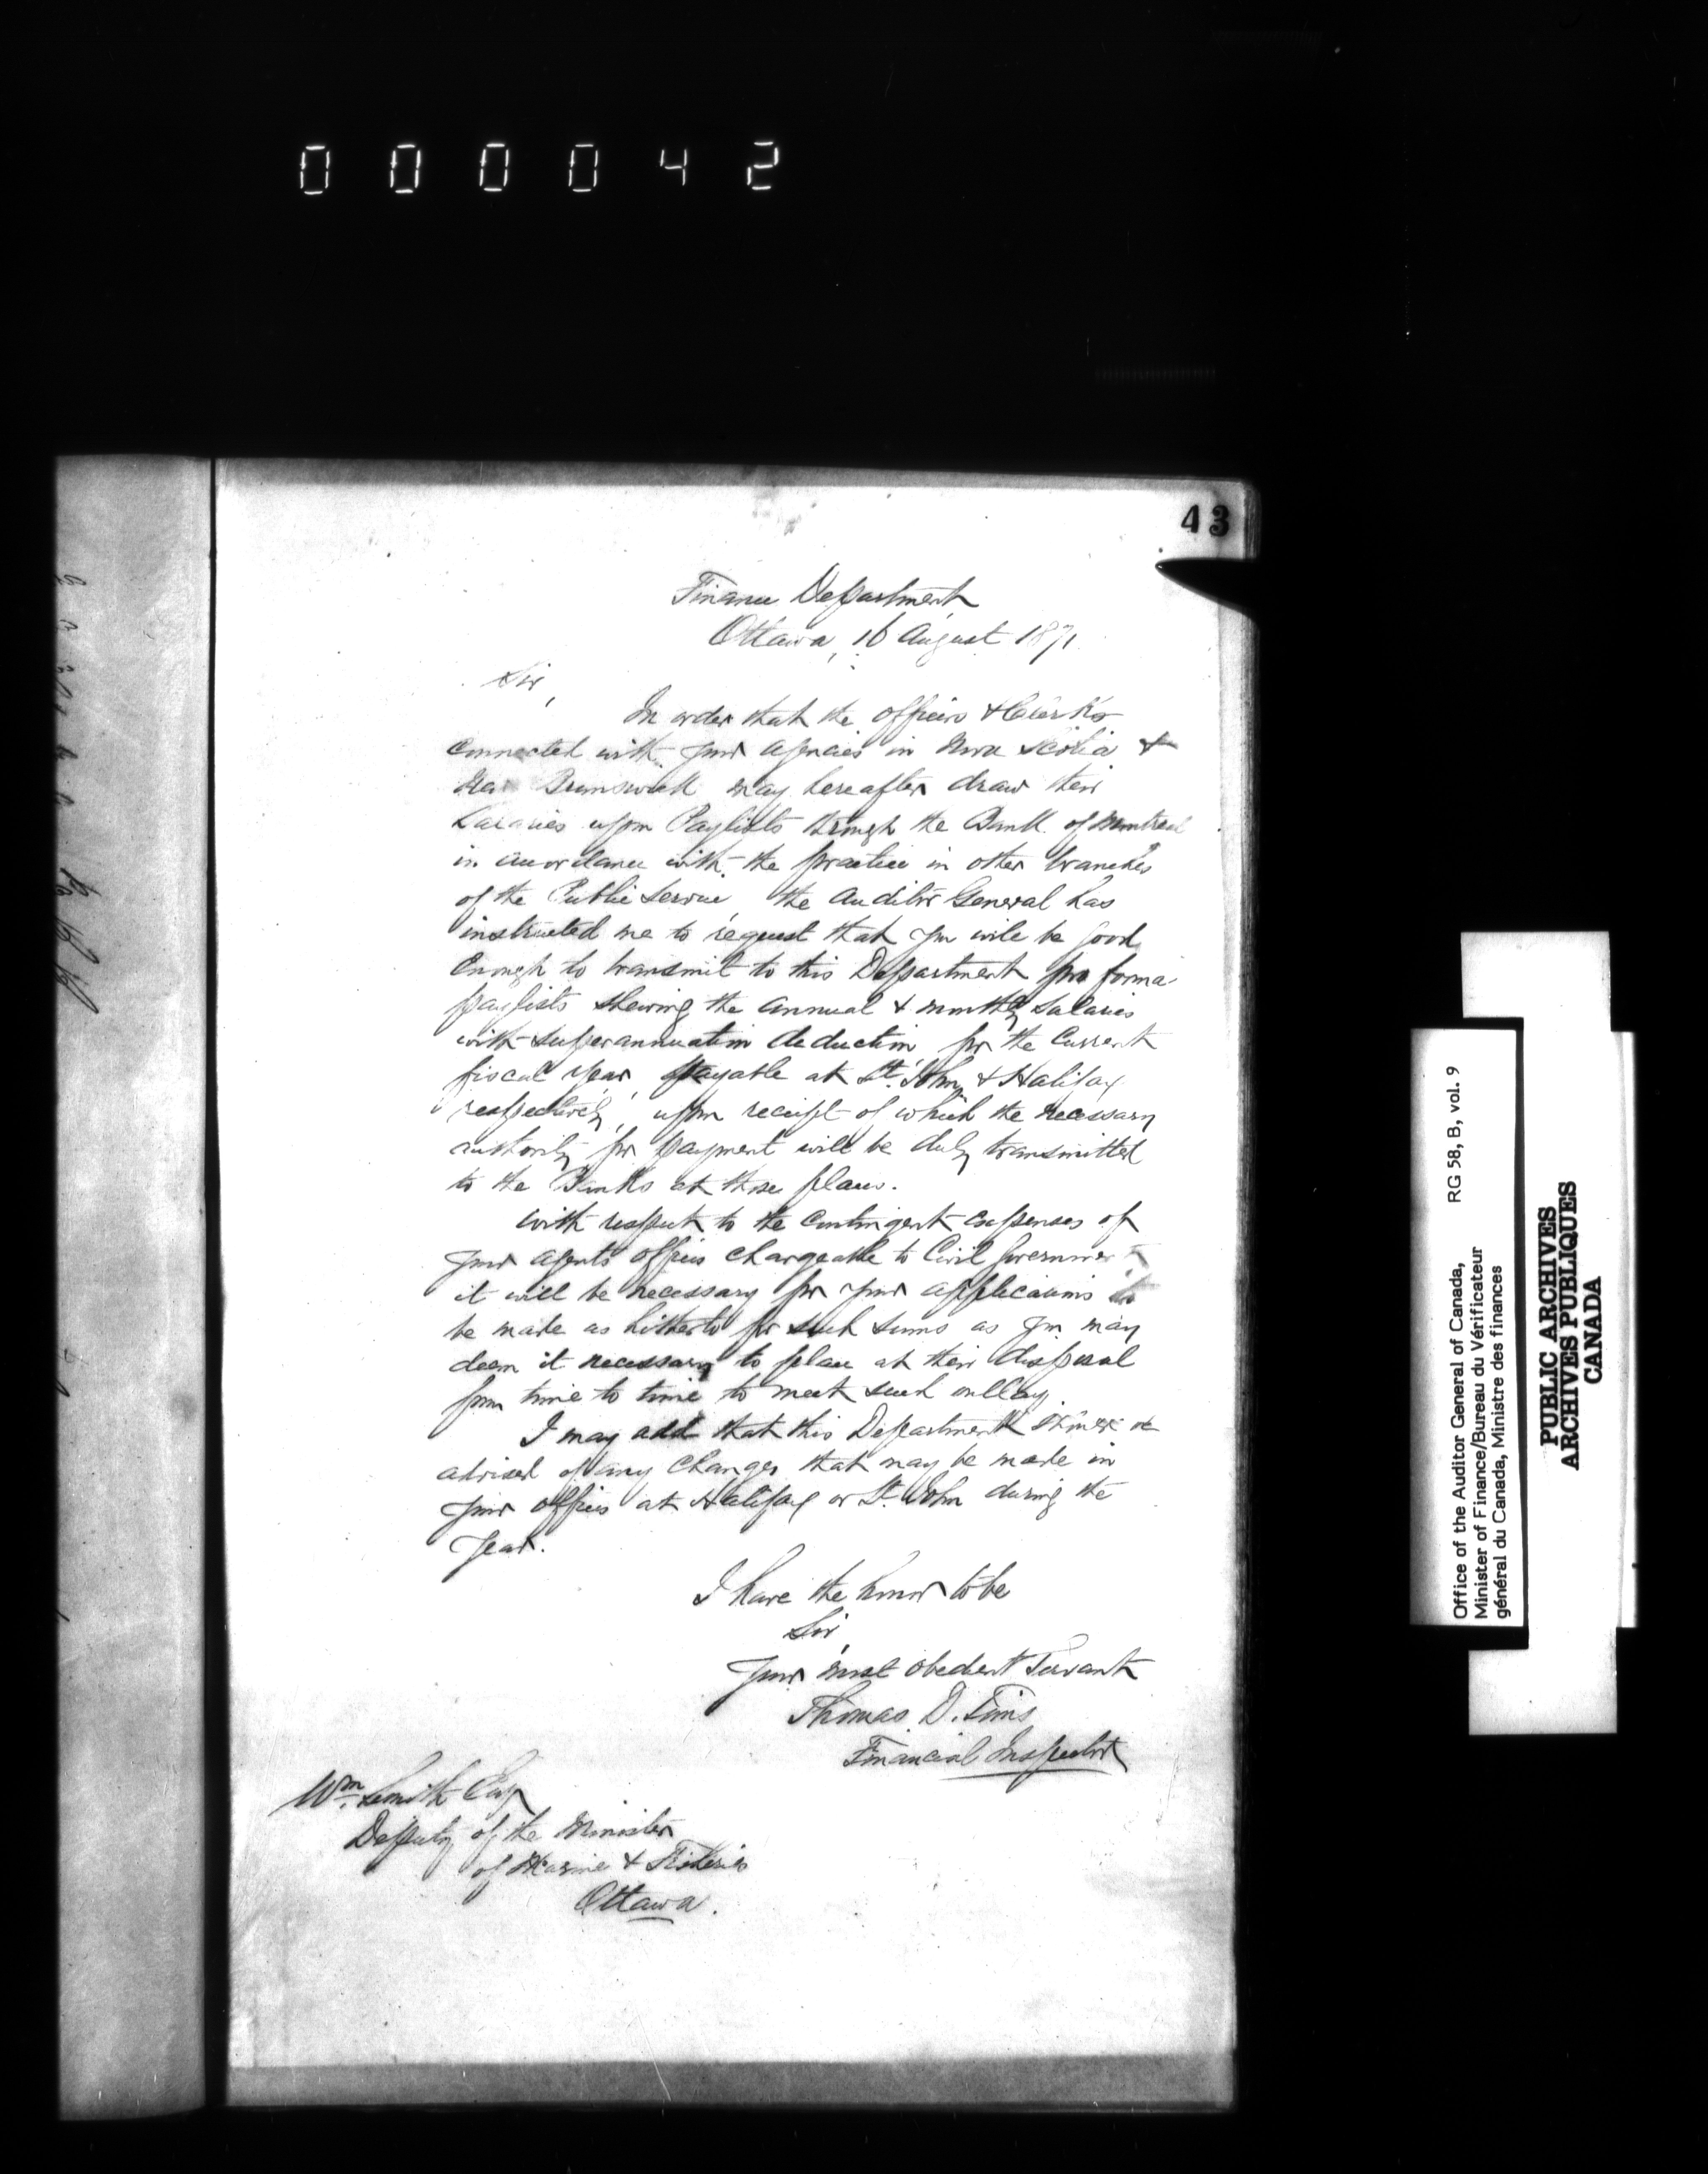 000042
43
Finance Department
Ottawa, 16 August 1871
Sir,
In order that the officers & Clerks
connected with your agencies in Nova Scotia &
New Brunswick may hereafter draw their
Salaries upon Paylists through the Bank of Montreal
in accordance with the practice in other branches
of the Public Service, the Auditor General has
instructed me to request that you will be good
enough to transmit to this Department pro forma
paylists shewing the annual & monthly Salaries
with superannuation deduction, for the Current
fiscal year, payable at St. John & Halifax
respectively, upon receipt of which the necessary
authority for payment will be duly transmitted
to the Banks at those places.
With respect to the Contingent expenses of
your agents offices chargeable to Civil Government
it will be necessary for your applications to
be made as hitherto for such sums as you may
deem it necessary to place at their disposal
from time to time to meet such outlay.
I may add that this Department should be
advised of any changes that may be made in
your offices at Halifax or St. John during the
year.
I have the honor to be
Sir
Your most obedient Servant
Thomas D. Tims
Financial Inspector
Wm. Smith Esq
Deputy of the Minister
of Marine & Fisheries
Ottawa.
Office of the Auditor General of Canada,
Minister of Finance/Bureau du Vérificateur
général du Canada, Ministre des finances
RG 58, B, vol. 9
PUBLIC ARCHIVES
ARCHIVES PUBLIQUES
CANADA